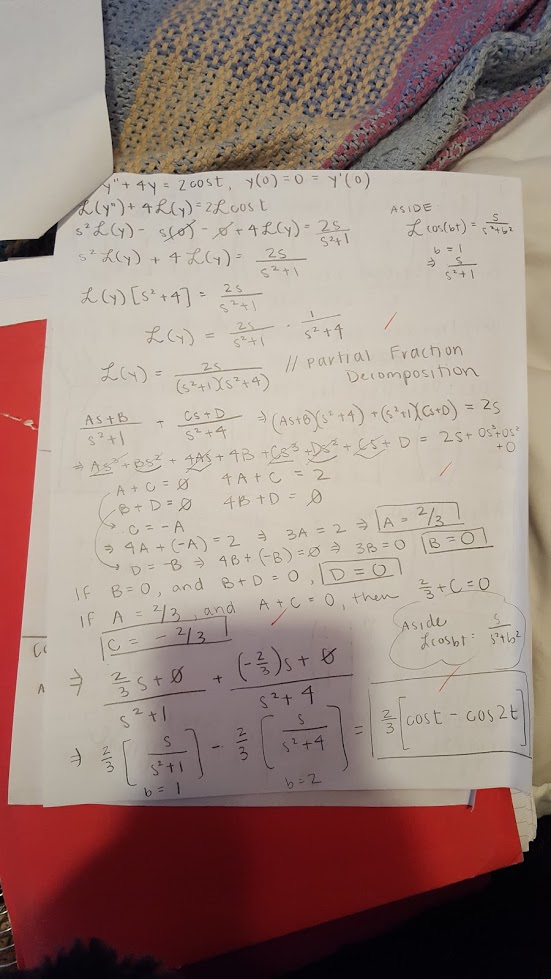 y'' + 4y = 2cost, y(0) = 0 = y'(0)
ℒ(y'') + 4ℒ(y) = 2ℒcost
s²ℒ(y) - s(0) - 0 + 4ℒ(y) = 2s/(s²+1)
s²ℒ(y) + 4ℒ(y) = 2s/(s²+1)
ASIDE
ℒcos(bt) = s/(s²+b²)
b = 1
⇒ s/(s²+1)
ℒ(y)[s²+4] = 2s/(s²+1)
ℒ(y) = 2s/(s²+1) · 1/(s²+4)
ℒ(y) = 2s/((s²+1)(s²+4)) // Partial Fraction
Decomposition
(As+B)/(s²+1) + (Cs+D)/(s²+4) ⇒ (As+B)(s²+4) + (s²+1)(Cs+D) = 2s
⇒ As³+Bs² + 4As + 4B + Cs³ + Ds² + Cs + D = 2s + 0s³+0s²
+0
A + C = 0 4A + C = 2
B + D = 0 4B + D = 0
C = -A
⇒ 4A + (-A) = 2 ⇒ 3A = 2 ⇒ A = 2/3
D = -B ⇒ 4B + (-B) = 0 ⇒ 3B = 0 B = 0
IF B = 0, and B + D = 0, D = 0
IF A = 2/3, and A + C = 0, then 2/3 + C = 0
C = - 2/3
Aside
ℒcosbt = s/(s²+b²)
⇒ (2/3 s + 0)/(s²+1) + ((-2/3)s + 0)/(s²+4)
⇒ 2/3 [s/(s²+1)] - 2/3 [s/(s²+4)] = 2/3 [cost - cos2t]
b = 1 b = 2